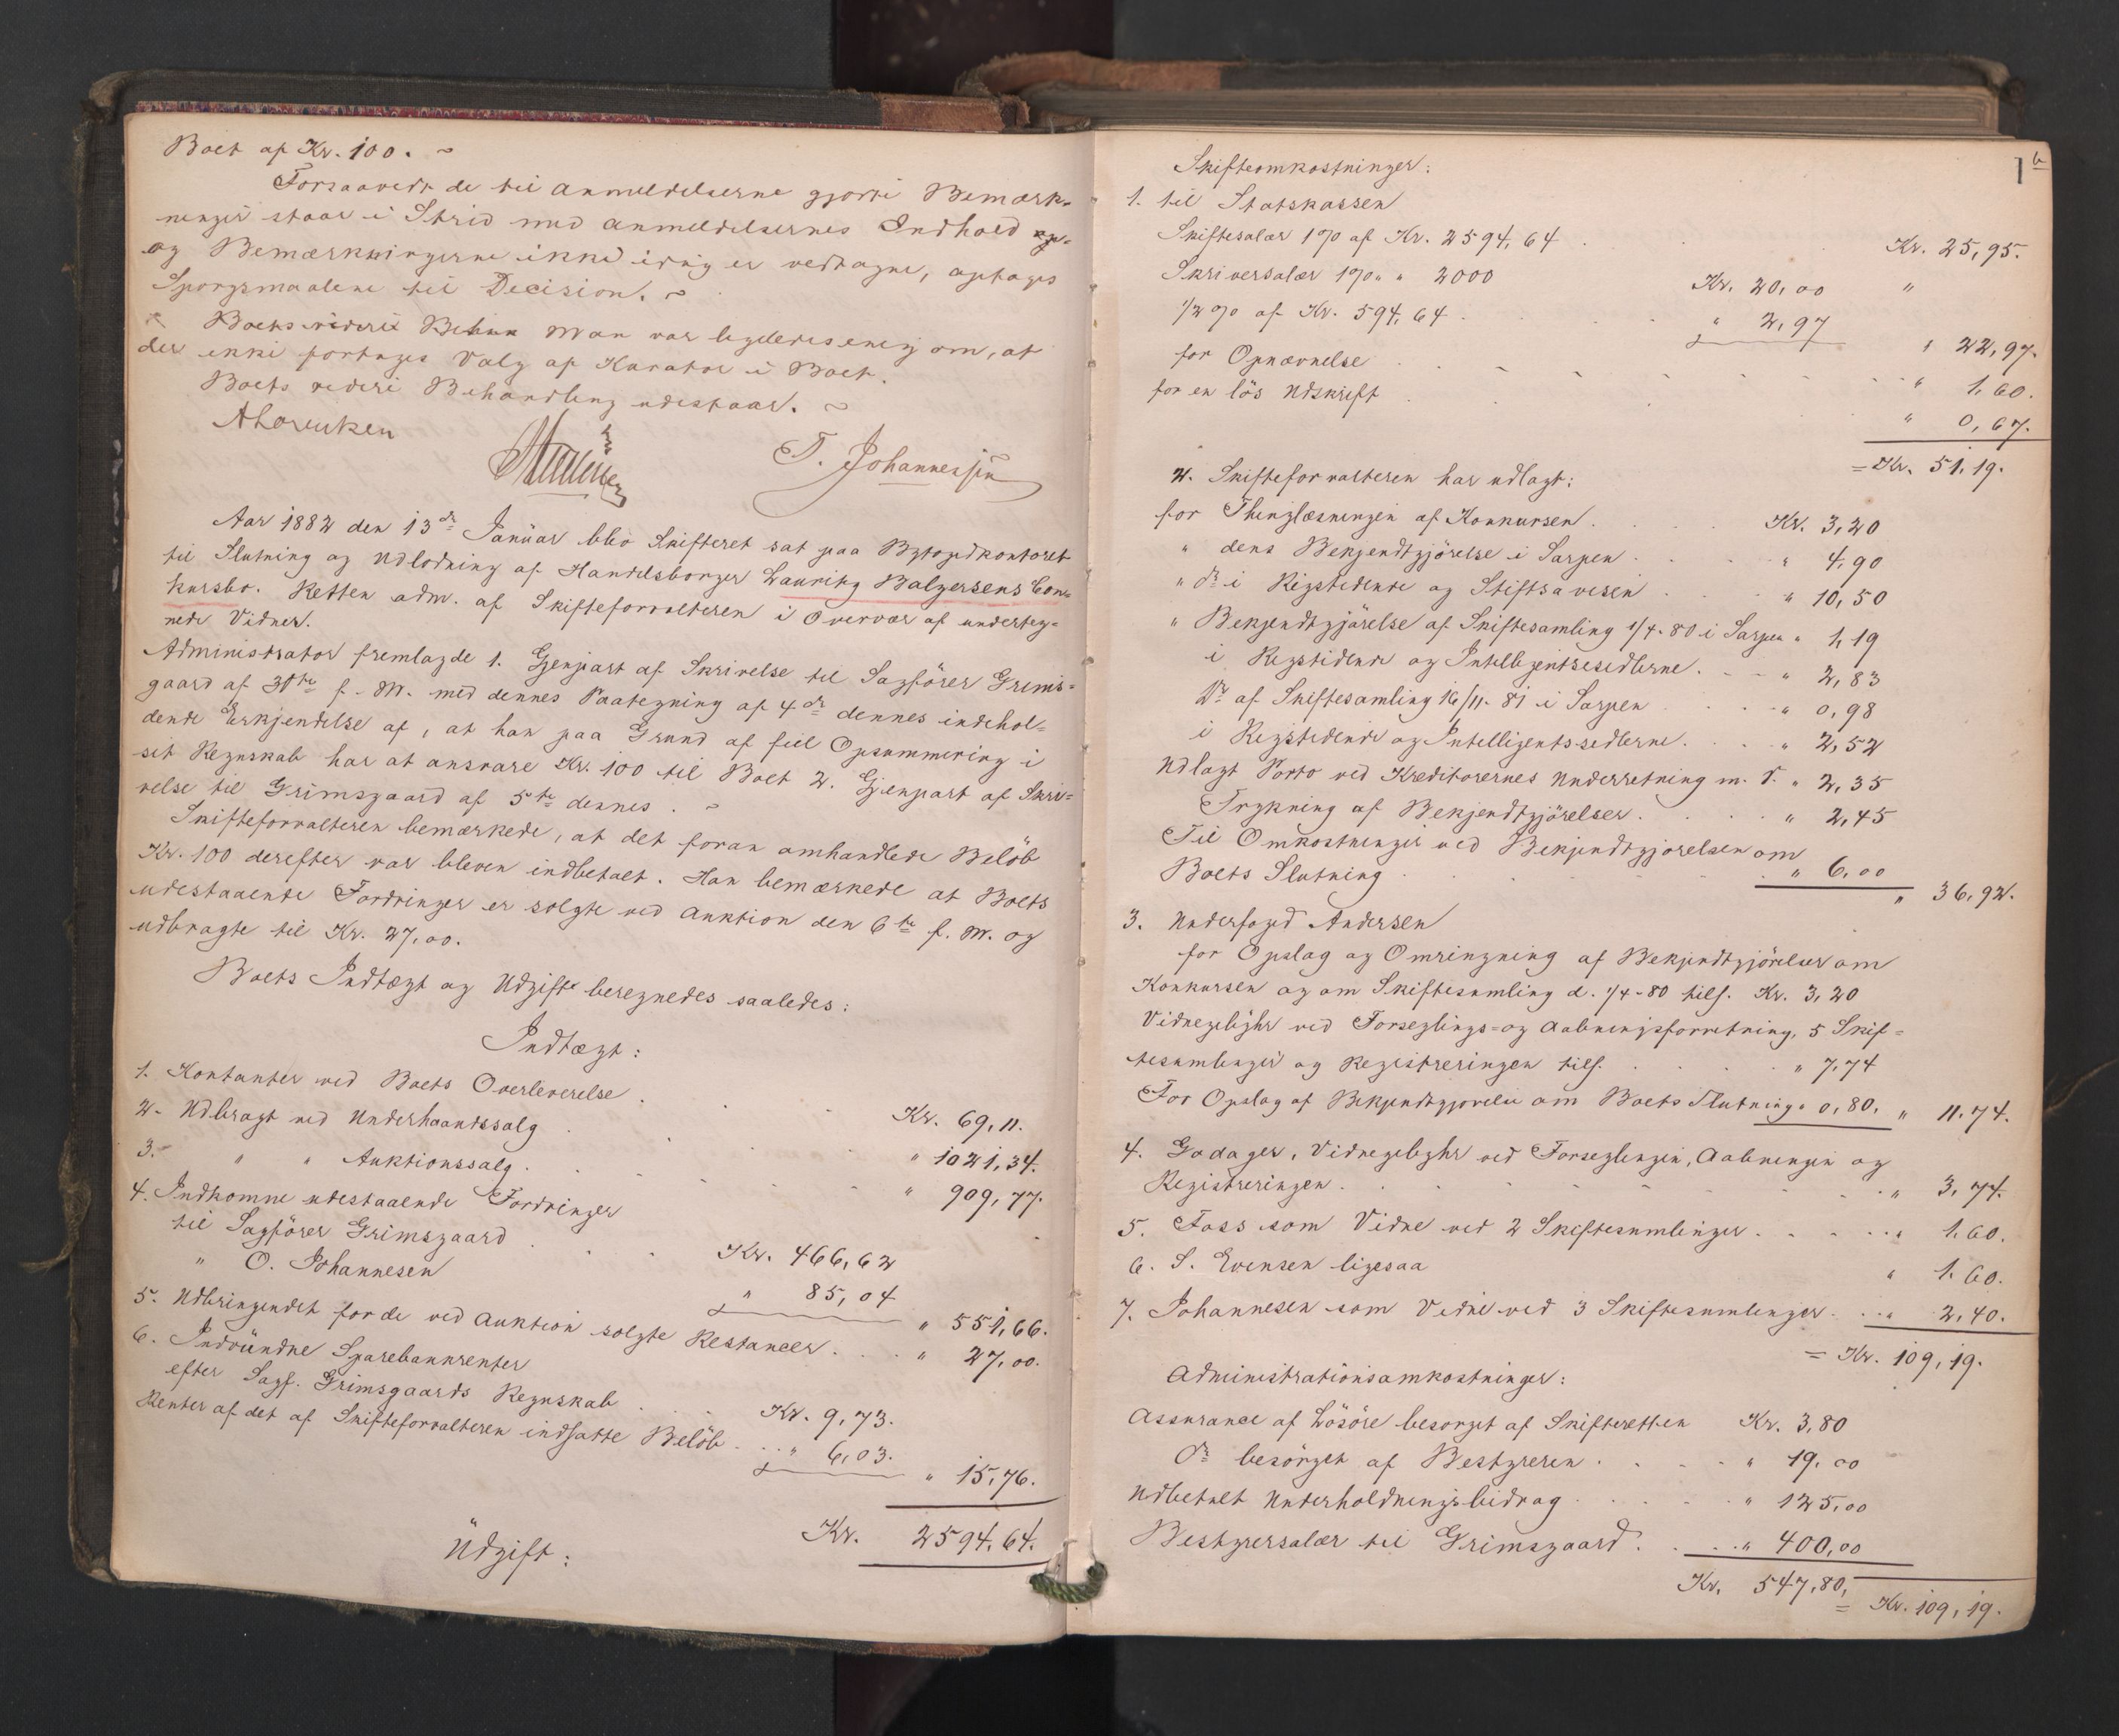 Boet af Kr. 100. ~
Forsaavidt de til Anmeldelserne gjorte Bemærk-
ninger staar i Strid med Anmeldelsernes Indhold
og Bemærkningerne ikke idag er vedtagne, optages
Spørgsmaalene til Decision. ~
Boets videre Man var ligeledes enig om, at
der ikke foretages Valg af Kurator i Boet.
Boets videre Behandling udestaar. ~
T. Johannessen
Aar 1882 den 13de Januar blev Skifteret sat paa Byfogedkontoret
til Slutning og Udlodning af Handelsborger Lauritz Balzersens Con-
kursbo. Retten adm. af Skifteforvalteren i Overvær af underteg-
nede Vidner.
Administrator fremlagde 1. Gjenpart af Skrivelse til Sagfører Grims-
gaard af 30te f. M. med dennes Paategning af 4de dennes indehol-
dende Erkjendelse af, at han paa Grund af feil Opsummering i
sit Regnskab har at ansvare Kr. 100 til Boet 2. Gjenpart af Skri-
velse til Grimsgaard af 5te dennes. ~
Skifteforvalteren bemærkede, at det foran omhandlede Beløb
Kr. 100 derefter var bleven indbetalt. Han bemærkede at Boets
udestaaende Fordringer er solgte ved Auktion den 6te f. M. og
udbragte til Kr. 27,00.
Boets Indtægt og Udgift beregnedes saaledes:
Indtægt:
1. Kontanter ved Boets Overleverelse . Kr. 69,11.
2. Udbragt ved Underhaandssalg . . " 1021,34.
3. " " Auktionssalg . . . " 909,77.
4. Indkomne udestaaende Fordringer
til Sagfører Grimsgaard . . . Kr. 466,62
" O. Johannesen " 85,04 " 551,66.
5. Udbringendet for de ved Auktion solgte Restancer . . . " 27,00.
6. Indvundne Sparebankrenter
efter Sagf. Grimsgaards Regnskab . . . Kr. 9,73.
Renter af det af Skifteforvalteren indsatte Beløb . . . " 6,03. " 15,76.
Kr. 2594,64.
Udgift:
Skifteomkostninger:
1. til Statskassen
Skiftesalær 1% af Kr. 2594,64 . . . Kr. 25,95.
Skriversalær 1% " " 2000 Kr. 20,00 "
1/2 % af Kr. 594,64 . . . " 2,97 " 22,97.
for Opnævnelse . . . " 1,60.
for en løs Udskrift . . " 0,67.
= Kr. 51,19.
2. Skifteforvalteren har udlagt:
for Thinglæsningen af Konkursen . . . Kr. 3,20
" dens Bekjendtgjørelse i Sarpen . . " 4,90
" do i Rigstidende og Stiftsavisen . " 10,50
" Bekjendtgjørelse af Skiftesamling 1/4-80 i Sarpen " 1,19
i Rigstidende og Intelligentssedlerne . . " 2,83
Do af Skiftesamling 16/11-81 i Sarpen . . " 0,98
i Rigstidende og Intelligentssedlerne . . " 2,52
Udlagt Porto ved Kreditorernes Underretning m. V. " 2,35
Trykning af Bekjendtgjørelser . . . " 2,45
Til Omkostninger ved Bekjendtgjørelsen om
Boets Slutning . . . " 6,00 " 36,92.
3. Underfoged Andersen
for Opslag og Omringning af Bekjendtgjørelser om
Konkursen og om Skiftesamling d. 1/4-80 tils. Kr. 3,20
Vidnegebyhr ved Forseglings- og Aabningsforretning, 5 Skif-
tesamlinger og Registreringen tils. . . . " 7,74
For Opslag af Bekjendtgjørelse om Boets Slutning " 0,80. " 11,74.
4. Godager, Vidnegebyhr ved Forseglingen, Aabningen og
Registreringen . . . " 3,74.
5. Foss som Vidne ved 2 Skiftesamlinger . . . " 1,60.
6. S. Evensen ligesaa " 1,60.
7. Johannesen som Vidne ved 3 Skiftesamlinger . . " 2,40.
= Kr. 109,19.
Administrationsomkostninger:
Assurance af Løsøre besørget af Skifteretten Kr. 3,80
Do besørget af Bestyreren . . . " 19,00
Udbetalt Underholdningsbidrag . . . " 125,00
Bestyrersalær til Grimsgaard . . . " 400,00
Kr. 547,80, = Kr. 109,19.